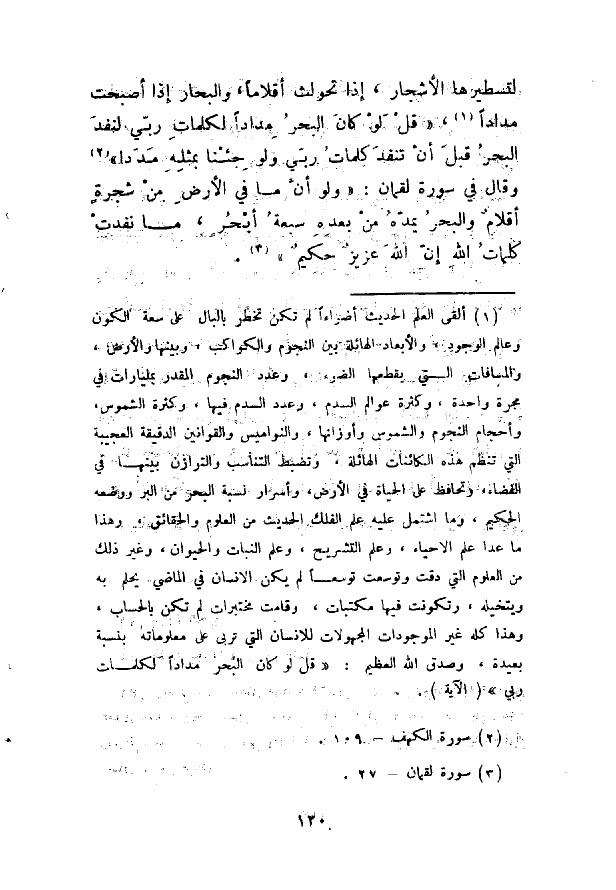 لتسطيرها الأشجار ، إذا تحولت أقلاماً، والبحار إذا أصبحت
مداداً (١) ، « قلْ لوْ كانَ البحرُ مِداداً لكلماتِ ربّي لنفدَ
البحرُ قبلَ أنْ تنفدَ كلماتُ ربّي ولو جِئنا بمثلِهِ مَدَدا » (٢)
وقال في سورة لقمان : « ولو أنَّ ما في الأرضِ مِنْ شجرةٍ
أقلامٌ والبحرُ يمدّهُ منْ بعدِهِ سبعةُ أبْحُرٍ ، مـا نفدتْ
كلماتُ اللهِ إنّ اللهَ عزيزٌ حكيمٌ » (٣) .
(١) ألقى العلم الحديث أضواءاً لم تكن تخطر بالبال على سعة الكون
وعالم الوجود ، والأبعاد الهائلة بين النجوم والكواكب ، وبينها والأرض ،
والمسافات الـتي يقطعها الضوء ، وعدد النجوم المقدر بمليارات في
مجرة واحدة ، وكثرة عوالم السدم ، وعدد السدم فيها ، وكثرة الشموس،
وأحجام النجوم والشموس وأوزانها ، والنواميس والقوانين الدقيقة العجيبة
التي تنظم هذه الكائنات الهائلة ، وتضبط التناسب والتوازن بينهـا في
الفضاء، وتحافظ على الحياة في الأرض، وأسرار نسبة البحر من البر ووضعه
الحكيم ، وما اشتمل عليه علم الفلك الحديث من العلوم والحقائق ، وهذا
ما عدا علم الاحياء ، وعلم التشريح ، وعلم النبات والحيوان ، وغير ذلك
من العلوم التي دقت وتوسعت توسعـاً لم يكن الانسان في الماضي يحلم به
ويتخيله ، وتكونت فيها مكتبات ، وقامت مختبرات لم تكن بالحساب ،
وهذا كله غير الموجودات المجهولات للانسان التي تربى على معلوماته بنسبة
بعيدة ، وصدق الله العظيم : « قل لو كان البحر مداداً لـكلمـات
ربي » ( الآية ) .
(٢) سورة الكهف – ١٠٩ .
(٣) سورة لقمان – ٢٧ .
١٣٠